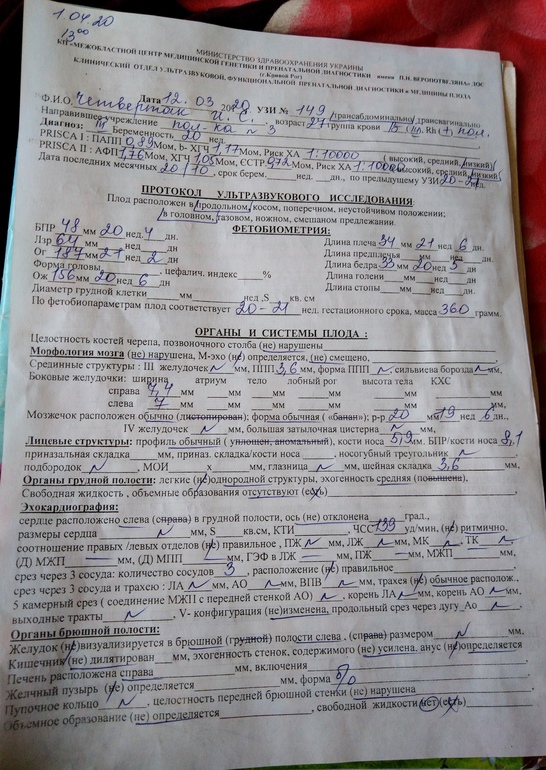 1.04.20
13⁰⁰
МИНИСТЕРСТВО ЗДРАВООХРАНЕНИЯ УКРАИНЫ
КП «МЕЖОБЛАСТНОЙ ЦЕНТР МЕДИЦИНСКОЙ ГЕНЕТИКИ И ПРЕНАТАЛЬНОЙ ДИАГНОСТИКИ имени П.Н. ВЕРОПОТВЕЛЯНА» ДОС
(г.Кривой Рог)
КЛИНИЧЕСКИЙ ОТДЕЛ УЛЬТРАЗВУКОВОЙ, ФУНКЦИОНАЛЬНОЙ ПРЕНАТАЛЬНОЙ ДИАГНОСТИКИ и МЕДИЦИНЫ ПЛОДА
Дата 12. 03 2020 УЗИ № 149 (трансабдоминально) трансвагинально
Ф.И.О. И. С. , возраст 27 группа крови Rh (+) пол.
Направившее учреждение пол-ка № 3
Диагноз: III Беременность 20 нед.
PRISCA I : ПАПП 0,89 Мом, β- ХГЧ 1,17 Мом, Риск ХА 1:10000 ( высокий, средний, низкий)
PRISCA II : АФП 1,76 Мом, ХГЧ 1,05 Мом, ЕСТР 0,72 Мом, Риск ХА 1:10000 (высокий, средний, низкий)
Дата последних месячных 20/10 , срок берем. нед. дн., по предыдущему УЗИ 20-21 нед.
ПРОТОКОЛ УЛЬТРАЗВУКОВОГО ИССЛЕДОВАНИЯ:
Плод расположен в продольном, косом, поперечном, неустойчивом положении;
в головном, тазовом, ножном, смешаном предлежании.
ФЕТОБИОМЕТРИЯ:
БПР 48 мм 20 нед. 4 дн. Длина плеча 34 мм 21 нед 6 дн.
Лзр 64 мм нед дн. Длина предплечья мм нед дн.
Ог 187 мм 21 нед 2 дн. Длина бедра 33 мм 20 нед 5 дн
Форма головы , цефалич. индекс % Длина голени мм нед дн.
Ож 156 мм 20 нед 6 дн Длина стопы мм нед дн.
Диаметр грудной клетки мм нед ,S кв. см
По фетобиопараметрам плод соответствует 20-21 нед. гестационного срока, масса 360 грамм.
ОРГАНЫ И СИСТЕМЫ ПЛОДА :
Целостность костей черепа, позвоночного столба (не) нарушены
Морфология мозга (не) нарушена, М-эхо (не) определяется, (не) смещено,
Срединные структуры : III желудочек N мм, ППП 3,6 мм, форма ППП N, сильвиева борозда N мм,
Боковые желудочки: ширина атриум тело лобный рог высота тела КХС
справа 7,4 мм мм мм мм мм
слева 7 мм мм мм мм мм
Мозжечок расположен обычно (листопирован); форма обычная ( «банан»); р-р 20 мм 19 нед 6 дн.,
IV желудочек N мм, большая затылочная цистерна N мм,
Лицевые структуры: профиль обычный ( уплощен, аномальный), кости носа 5,9 мм, БПР/кости носа 8,1
приназальная складка мм, приназ. складка/кости носа , носогубный треугольник N ,
подбородок N , МОИ x мм, глазница N мм, шейная складка 3,6 мм,
Органы грудной полости: легкие (не)однородной структуры, эхогенность средняя (повышена),
Свободная жидкость , объемные образования отсутствуют (есть)
Эхокардиография:
сердце расположено слева (справа) в грудной полости, ось (не) отклонена град.,
размеры сердца N , S кв.см, КТИ , ЧСС 139 уд/мин, (не) ритмично,
соотношение правых /левых отделов (не) правильное , ПЖ N мм, ЛЖ N мм, МК N , ТК N ,
(Д) МЖП мм, (Д) МПП мм, ГЭФ в ЛЖ мм, ПЖ мм, МЖП мм,
срез через 3 сосуда: количество сосудов 3 , расположение (не) правильное
срез через 3 сосуда и трахею : ЛА N мм, АО N мм, ВПВ N мм, трахея (не) обычное располож.,
5 камерный срез ( соединение МЖП с передней стенкой АО) N , корень ЛА N мм, корень АО N мм,
выходные тракты N , V- конфигурация (не)изменена, продольный срез через дугу Ао N ,
Органы брюшной полости:
Желудок (не)визуализируется в брюшной (грудной) полости слева , (справа) размером N мм,
Кишечник (не) дилятирован мм, эхогенность стенок, содержимого (не) усилена, анус (не)определяется
Печень расположена справа мм, включения
Желчный пузырь (не) определяется мм, форма б/о
Пупочное кольцо N , целостность передней брюшной стенки (не) нарушена
Объемное образование (не) определяется , свободной жидкости нет (есть)